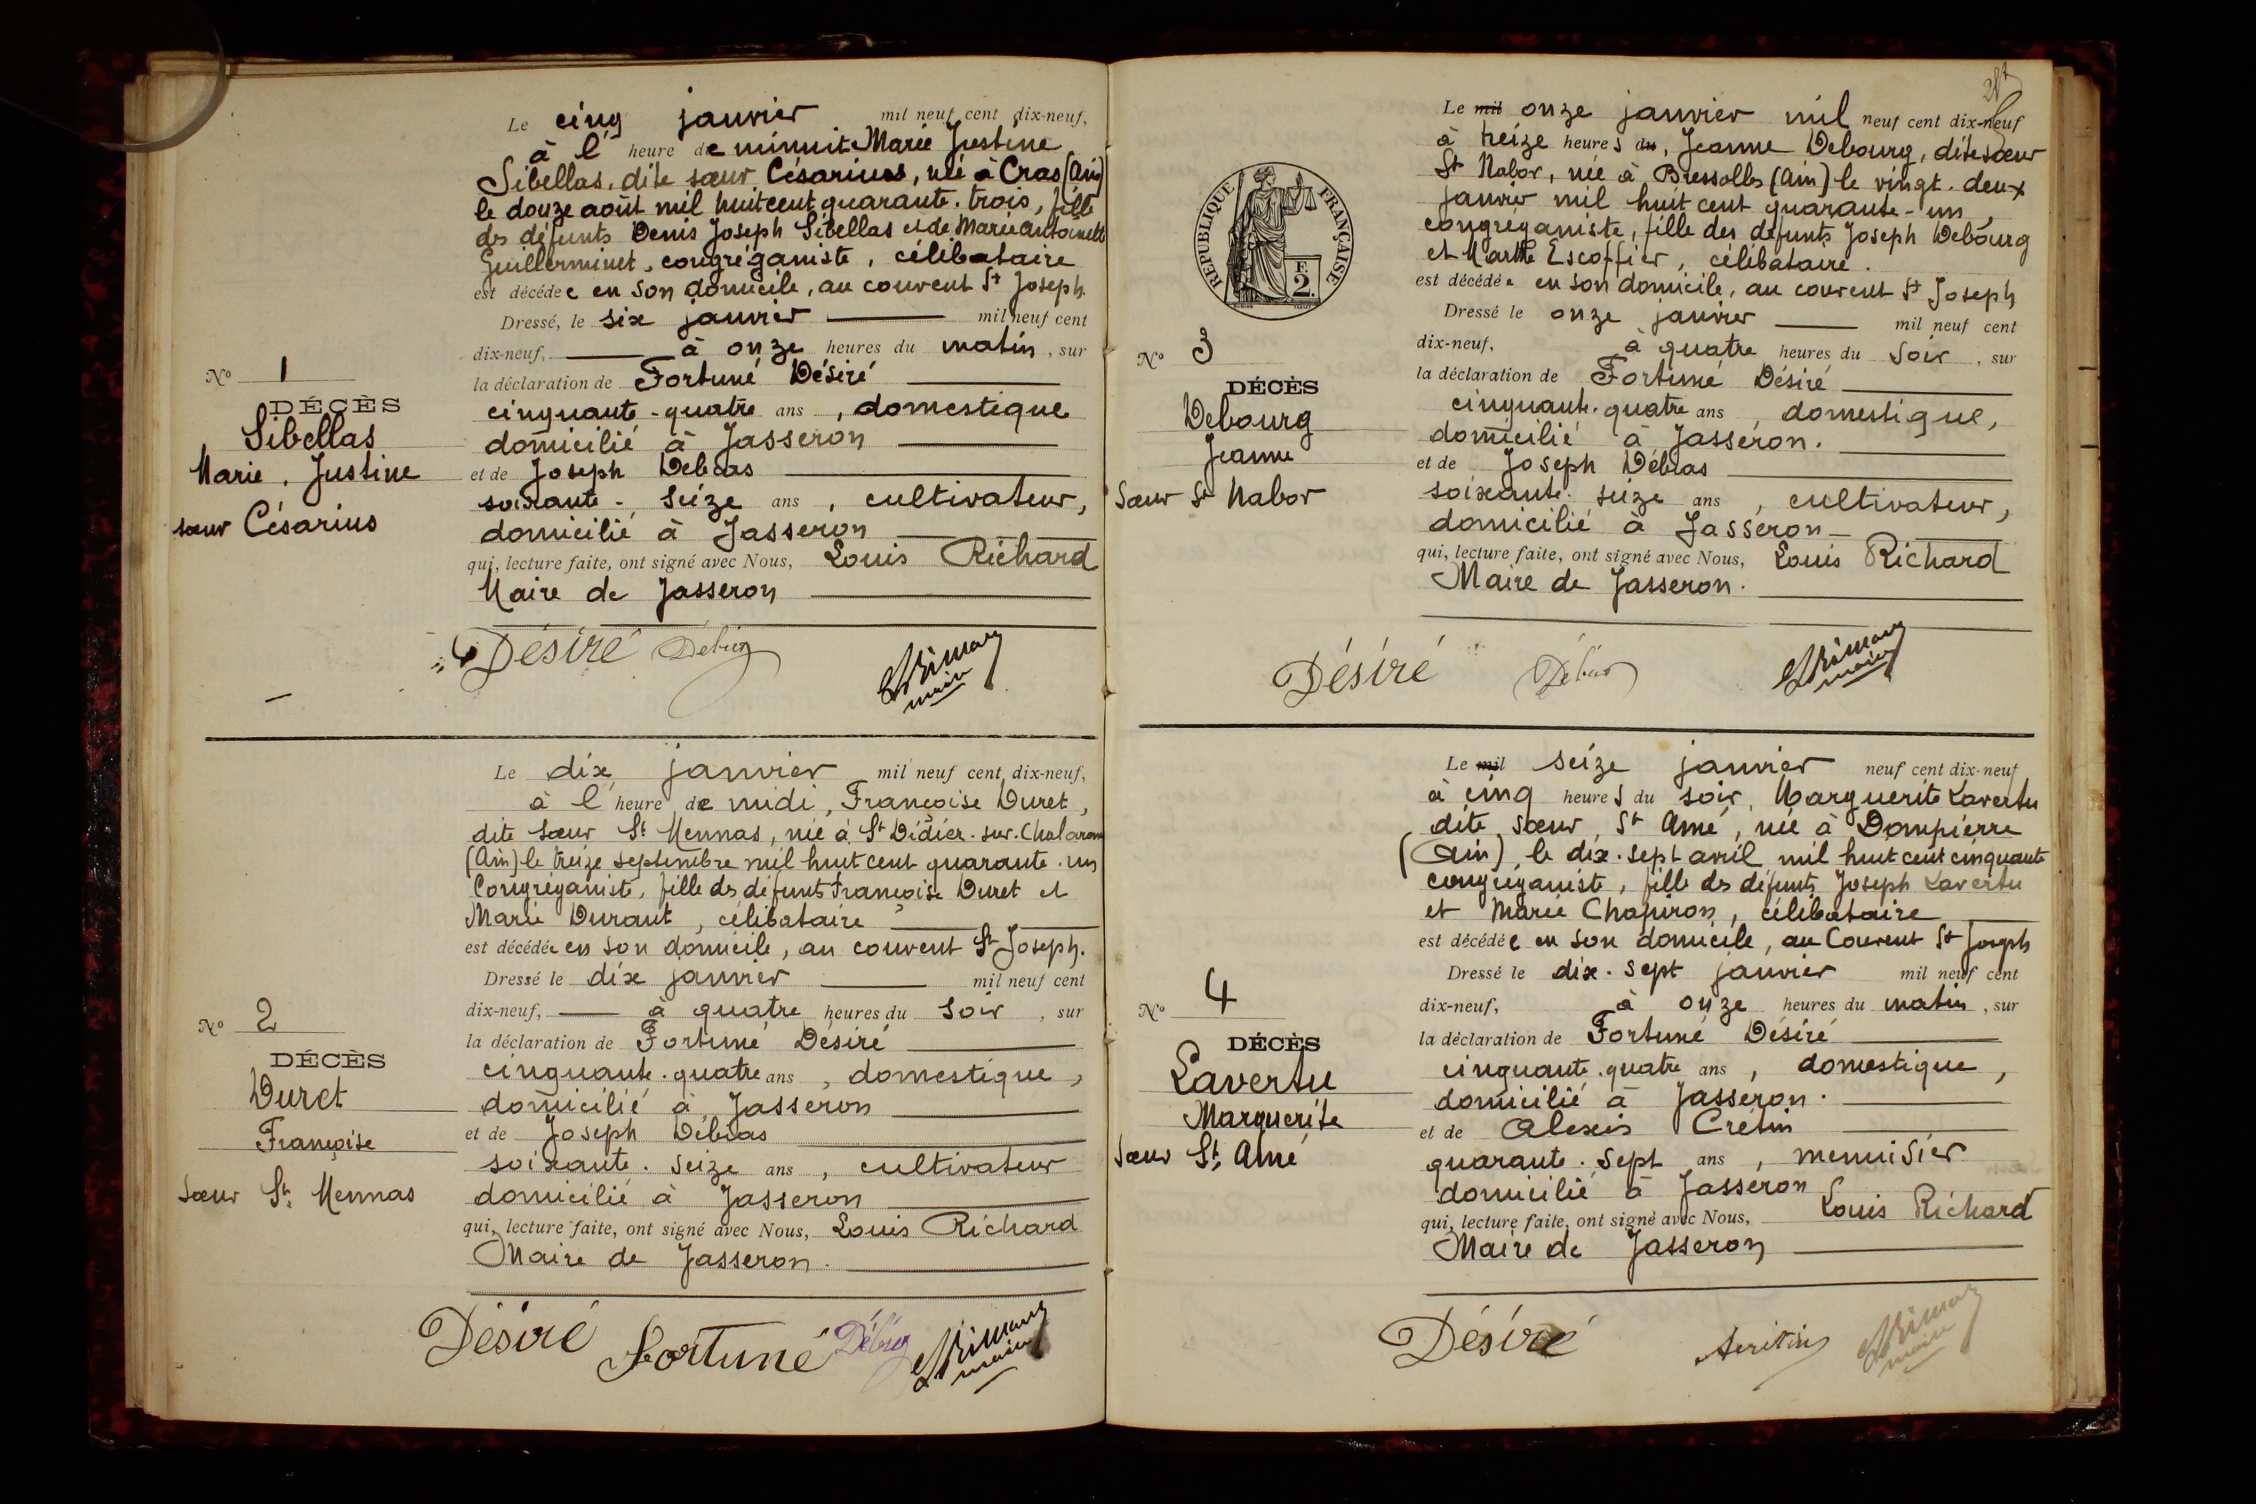 Le cinq janvier mil neuf cent dix-neuf,
à l' heure de minuit Marie Justine
Sibellas, dite sœur Césarius, née à Cras (Ain)
le douze août mil huit cent quarante-trois, fille
des défunts Denis Joseph Sibellas et de Marie Antoinette
Guillerminet, congréganiste, célibataire
est décédée en son domicile, au couvent St Joseph.
Dressé, le six janvier mil neuf cent
dix-neuf, à onze heures du matin, sur
la déclaration de Fortuné Désiré
cinquante-quatre ans, domestique
domicilié à Jasseron
et de Joseph Debias
soixante-seize ans, cultivateur,
domicilié à Jasseron
qui, lecture faite, ont signé avec Nous, Louis Richard
Maire de Jasseron
Désiré
maire
No 1
DÉCÈS
Sibellas
Marie, Justine
sœur Césarius
Le dix janvier mil neuf cent dix-neuf,
à l' heure de midi, Françoise Duret,
dite sœur St Mennas, née à St Didier-sur-Chalaronne
(Ain) le treize septembre mil huit cent quarante-un
Congréganiste, fille des défunts Françoise Duret et
Marie Durant, célibataire
est décédée en son domicile, au couvent St Joseph.
Dressé le dix janvier mil neuf cent
dix-neuf, à quatre heures du soir, sur
la déclaration de Fortuné Désiré
cinquante-quatre ans, domestique,
domicilié à Jasseron
et de Joseph Débias
soixante-seize ans, cultivateur
domicilié à Jasseron
qui, lecture faite, ont signé avec Nous, Louis Richard
Maire de Jasseron.
Désiré Fortuné
maire
No 2
DÉCÈS
Duret
Françoise
Sœur St Mennas
RÉPUBLIQUE FRANÇAISE
F.
2.
Le mil onze janvier mil neuf cent dix-neuf
à treize heures du, Jeanne Debourg, dite sœur
St Nabor, née à Bressolles (Ain) le vingt-deux
janvier mil huit cent quarante-un,
congréganiste, fille des défunts Joseph Debourg
et Marthe Escoffier, célibataire.
est décédée en son domicile, au couvent St Joseph
Dressé le onze janvier mil neuf cent
dix-neuf, à quatre heures du soir, sur
la déclaration de Fortuné Désiré
cinquante-quatre ans, domestique,
domicilié à Jasseron.
et de Joseph Débias
soixante-seize ans, cultivateur,
domicilié à Jasseron
qui, lecture faite, ont signé avec Nous, Louis Richard
Maire de Jasseron.
Désiré
maire
No 3
DÉCÈS
Debourg
Jeanne
Sœur St Nabor
Le mil seize janvier neuf cent dix-neuf
à cinq heures du soir, Marguerite Lavertu
dite sœur St Amé, née à Dompierre
(Ain), le dix-sept avril mil huit cent cinquante
congréganiste, fille des défunts Joseph Lavertu
et Marie Chapiron, célibataire
est décédée en son domicile, au Couvent St Joseph
Dressé le dix-sept janvier mil neuf cent
dix-neuf, à onze heures du matin, sur
la déclaration de Fortuné Désiré
cinquante-quatre ans, domestique,
domicilié à Jasseron.
et de Alexis Crétin
quarante-sept ans, menuisier
domicilié à Jasseron
qui, lecture faite, ont signé avec Nous, Louis Richard
Maire de Jasseron
Désiré
maire
No 4
DÉCÈS
Lavertu
Marguerite
Sœur St Amé